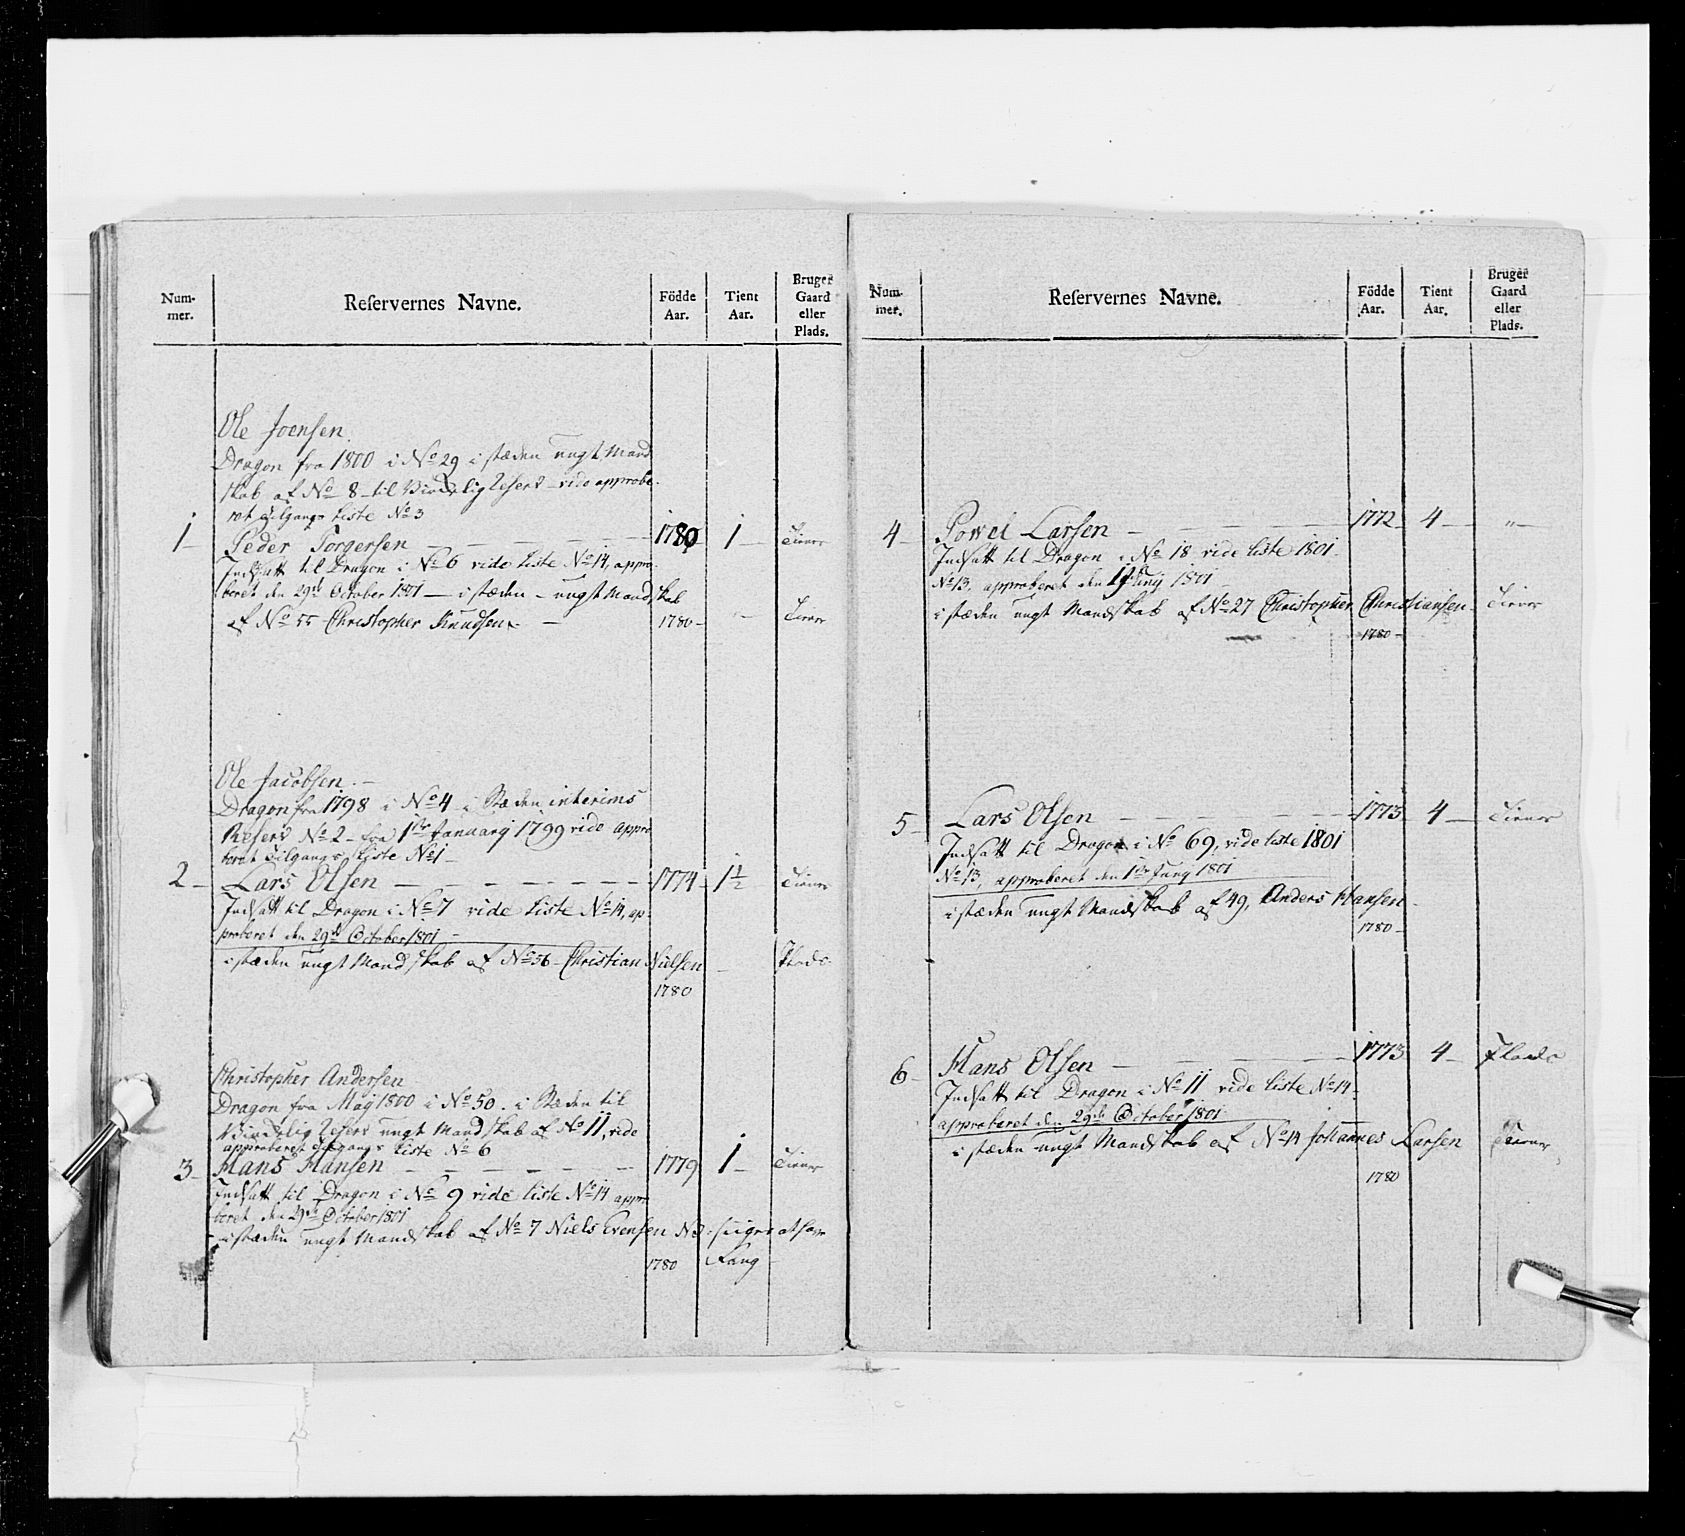 Num-
mer.
Reservernes Navne.
Födde
Aar.
Tient
Aar.
Bruger
Gaard
eller
Plads.
Ole Joensen
Dragon fra 1800 i No 29 i stæden ungt Mand
skab af No 8 til Virkelig Reserv vide approbe-
ret Tilgangs Liste No 3
1 Peder Torgersen 1780 1 Tiener
Indsatt til Dragon i No 6 vide Liste No 14, appro-
beret den 29de October 1801 — i stæden - ungt Mandskab
af No 55 Christopher Knudsen 1780 — Tiener
Ole Jacobsen
Dragon fra 1798 i No 4 i Stæden interims
Reserv No 2 fra 1ste Januarij 1799 vide appro
beret Tilgangs Liste No 1
2 Lars Olsen 1774 1½ Tiener
Indsatt til Dragon i No 7 vide Liste No 14, ap-
proberet den 29de October 1801
i stæden ungt Mandskab af No 56 Christian Nielsen — Plads
1780
Christopher Andersen
Dragon fra Maij 1800 i No 50. i Stæden til
Virkelig Reserv ungt Mandskab af No 11, vide
approberet Tilgangs Liste No 6
3 Hans Hansen 1779 1 Tiener
Indsatt til Dragon i No 9 vide Liste No 14 appro
beret den 29de October 1801
i stæden ungt Mandskab af No 7 Niels Evensen siiger at have
1780 Fang
Num-
mer.
Reservernes Navne.
Födde
Aar.
Tient
Aar.
Bruger
Gaard
eller
Plads.
4 Powel Larsen 1772 4 "
Indsatt til Dragon i No 18 vide Liste 1801
No 13, approberet den Junij 1801
i stæden ungt Mandskab af No 27 Christopher Christiansen Tiener
1780
5 Lars Olsen 1773 4 Tiener
Indsatt til Dragon i No 69, vide Liste 1801
No 13, approberet den 1ste Junij 1801
i stæden ungt Mandskab af 49, Anders Hansen
1780
6 Hans Olsen 1773 4 Plads
Indsatt til Dragon i No 11 vide Liste No 14
approberet den 29de October 1801
i stæden ungt Mandskab af No 14 Johannes Larsen Tiener
1780